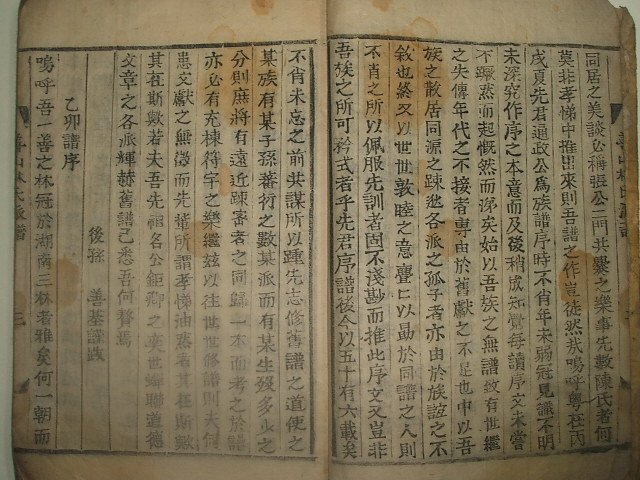 同居之美談必稱張公二門共爨之樂事先數陳氏者何
莫非孝悌中推出來則吾譜之作豈徒然哉嗚呼粤在丙
戌夏先君遁政公為族譜序時不肖年未弱冠見識不明
未深究作序之本意而及後稍成知覺每讀序文未嘗
不蹶然而起慨然而涕矣始以吾族之無譜紋有世繼
之失傳年代之不接亦專由於舊獻之不足也中以吾
族之散居同源之疎迯各派之孤子者亦由於族誼之不
敘也終又以世世敦睦之意亹亹以勗於同譜之人則
不肖之所以佩服先訓者固不淺尠而推此序文又豈非
吾族之所可矜式者乎先君序譜後今以五十有六載矣
善山林氏派譜
不肖未忘之前共謀所以踵先志修舊譜之道使之
某族有某子孫蕃衍之數某派而有某生歿多少之
分則庶將有遠近疎審者之同歸一本而考之於譜
亦必有充棟待宇之樂繼玆以往世世修譜則夫何
患文獻之無徵而先輩所謂孝悌油然者其在斯歟
其在斯歟若夫吾先祖名公鉅卿之奕世蟬聯道德
文章之各派輝赫舊譜已悉吾何贅焉
後孫 善基謹跋
乙卯譜序
嗚呼吾一善之林冠於湖南三林者雅矣何一朝而
善山林氏派譜
三